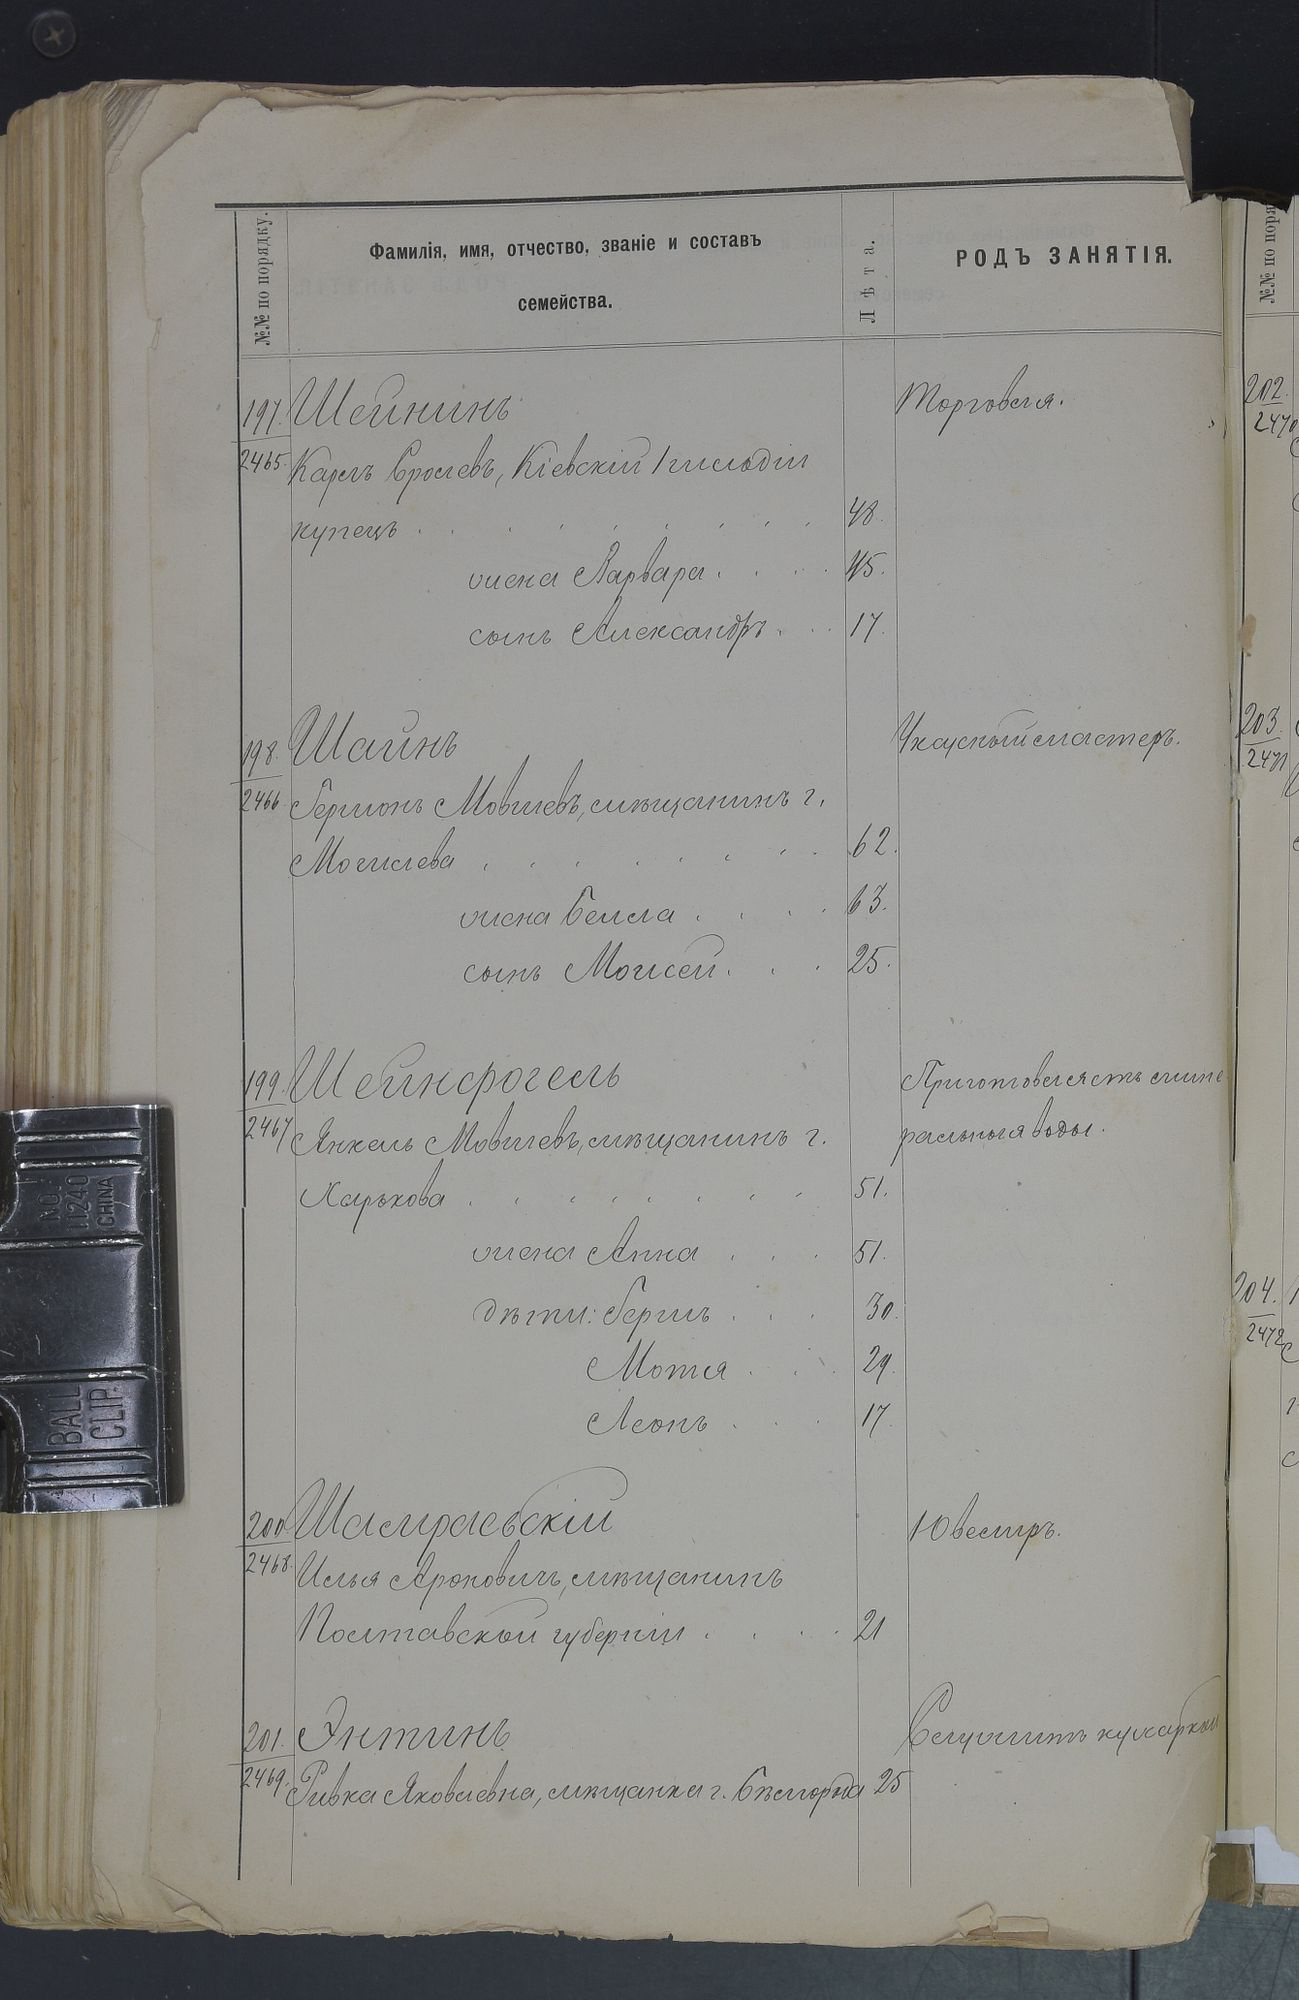 №№ по порядку.
Фамилія, имя, отчество, званіе и составъ
семейства.
Лѣта.
РОДЪ ЗАНЯТІЯ.
197. Шейнинъ Торговля.
2465. Карлъ Сролевъ, Кіевскій 1 гильдіи
купецъ . . . . . . . . 48.
жена Варвара . . . . 45.
сынъ Александръ . . . 17.
198. Шаинъ
2466. Мовшевъ, мѣщанинъ г.
Могилева . . . . . . . 62.
жена Бейла . . . . 63.
сынъ Моисей . . . 25.
199. Шейнфогель Приготовляетъ мине
2467 Янкель Мовшевъ, мѣщанинъ г. ральныя воды.
Харькова . . . . . . . 51.
жена Анна . . . 51.
дѣти: Берш . . . 30.
Мотя . . . 29.
Леонъ . . . 17.
200 Шамраевскій Ювелиръ.
2468. Илья Ароновичъ, мѣщанинъ
Полтавской губерніи . . . . 21
201. Энтинъ Служитъ кухаркой
2469. Ривка Яковлевна, мѣщанка г. 25
№№ по поря
202.
2470
203.
2471
204.
2472
NO.
11240
CHINA
BALL
CLIP